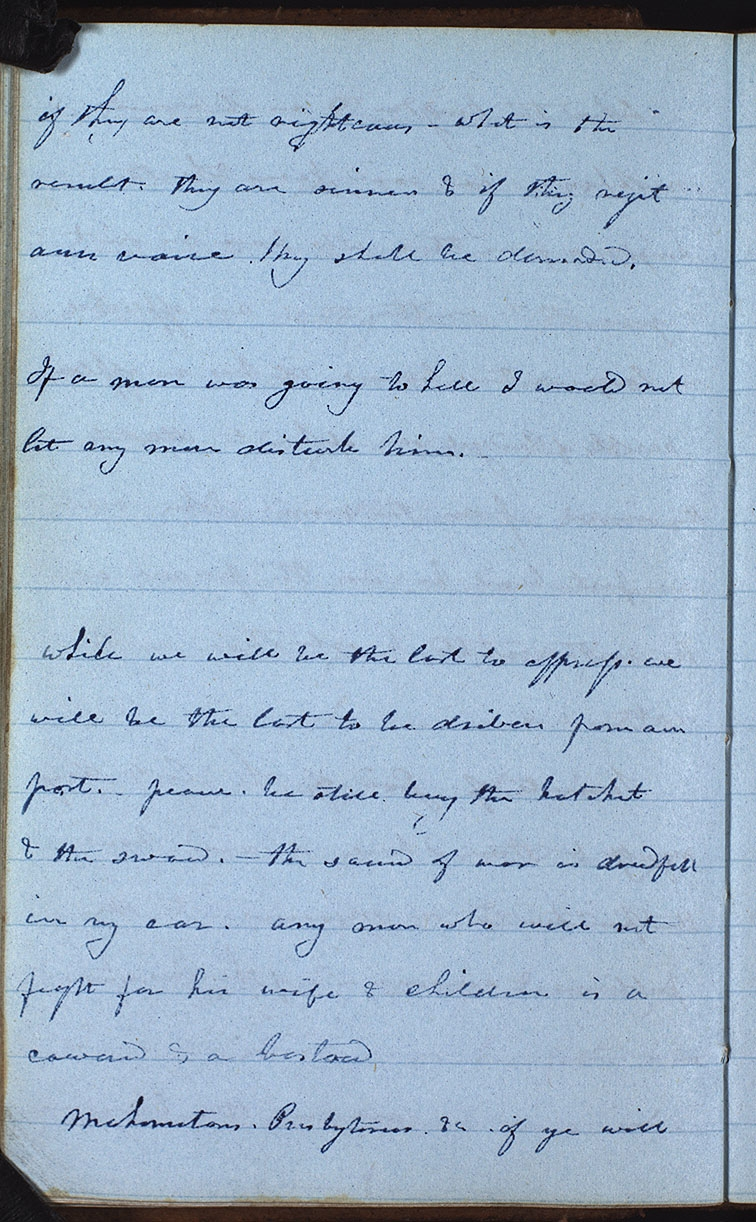 if they are not righteous - what is the
result. they are sinners & if they reject
our voice they shall be damned.
If a man was going to hell I would not
let any man disturb him.
while we will be the last to oppress. we
will be the last to be driven from our
post. - peace. be still. bury the hatchet
& the sword. - the sound of war is dredfull
in my ear. any man who will not
fight for his wife & children is a
coward & a bastard
Mahometans. Presbyterians. &c. if ye will